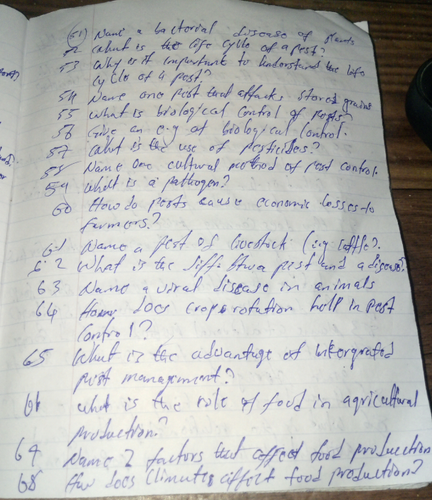 (51) Name a bacterial disease of plants
52 What is the life cycle of a pest?
53 Why is it important to understand the life
cycle of a pest?
54 Name one pest that affects stored grains
55 What is biological control of pests?
56 Give an e.g of biological control.
57 What is the use of pesticides?
58 Name one cultural method of pest control.
59 What is a pathogen?
60 How do pests cause economic losses to
farmers?
61 Name a pest of livestock (e.g cattle)?
62 What is the diff. btwn pest and a disease?
63 Name a viral disease in animals
64 How does crop rotation help in pest
control?
65 What is the advantage of intergrated
pest management?
61 what is the role of food in agricultural
production?
67 Name 2 factors that affect food production
68 How does climate affect food production?